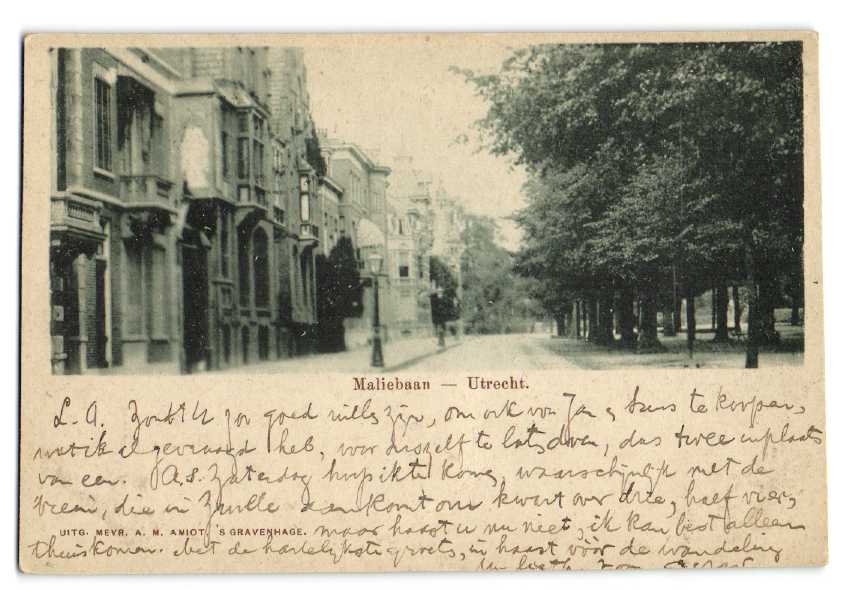 Maliebaan — Utrecht.
L. A. zoudt U zoo goed willen zijn, om ook voor Jan te koopen,
wat ik al gevraagd heb, voor mezelf te laten doen, dus twee in plaats
van een. A.s. Zaterdag hoop ik te komen, waarschijnlijk met de
trein, die in Zwolle aankomt om kwart over drie, half vier,
UITG. MEVR. A. M. AMIOT, 'S GRAVENHAGE.
maar haast u nu niet, ik kan best alleen
thuiskomen. Met de hartelijkste groets, in haast vóór de wandeling